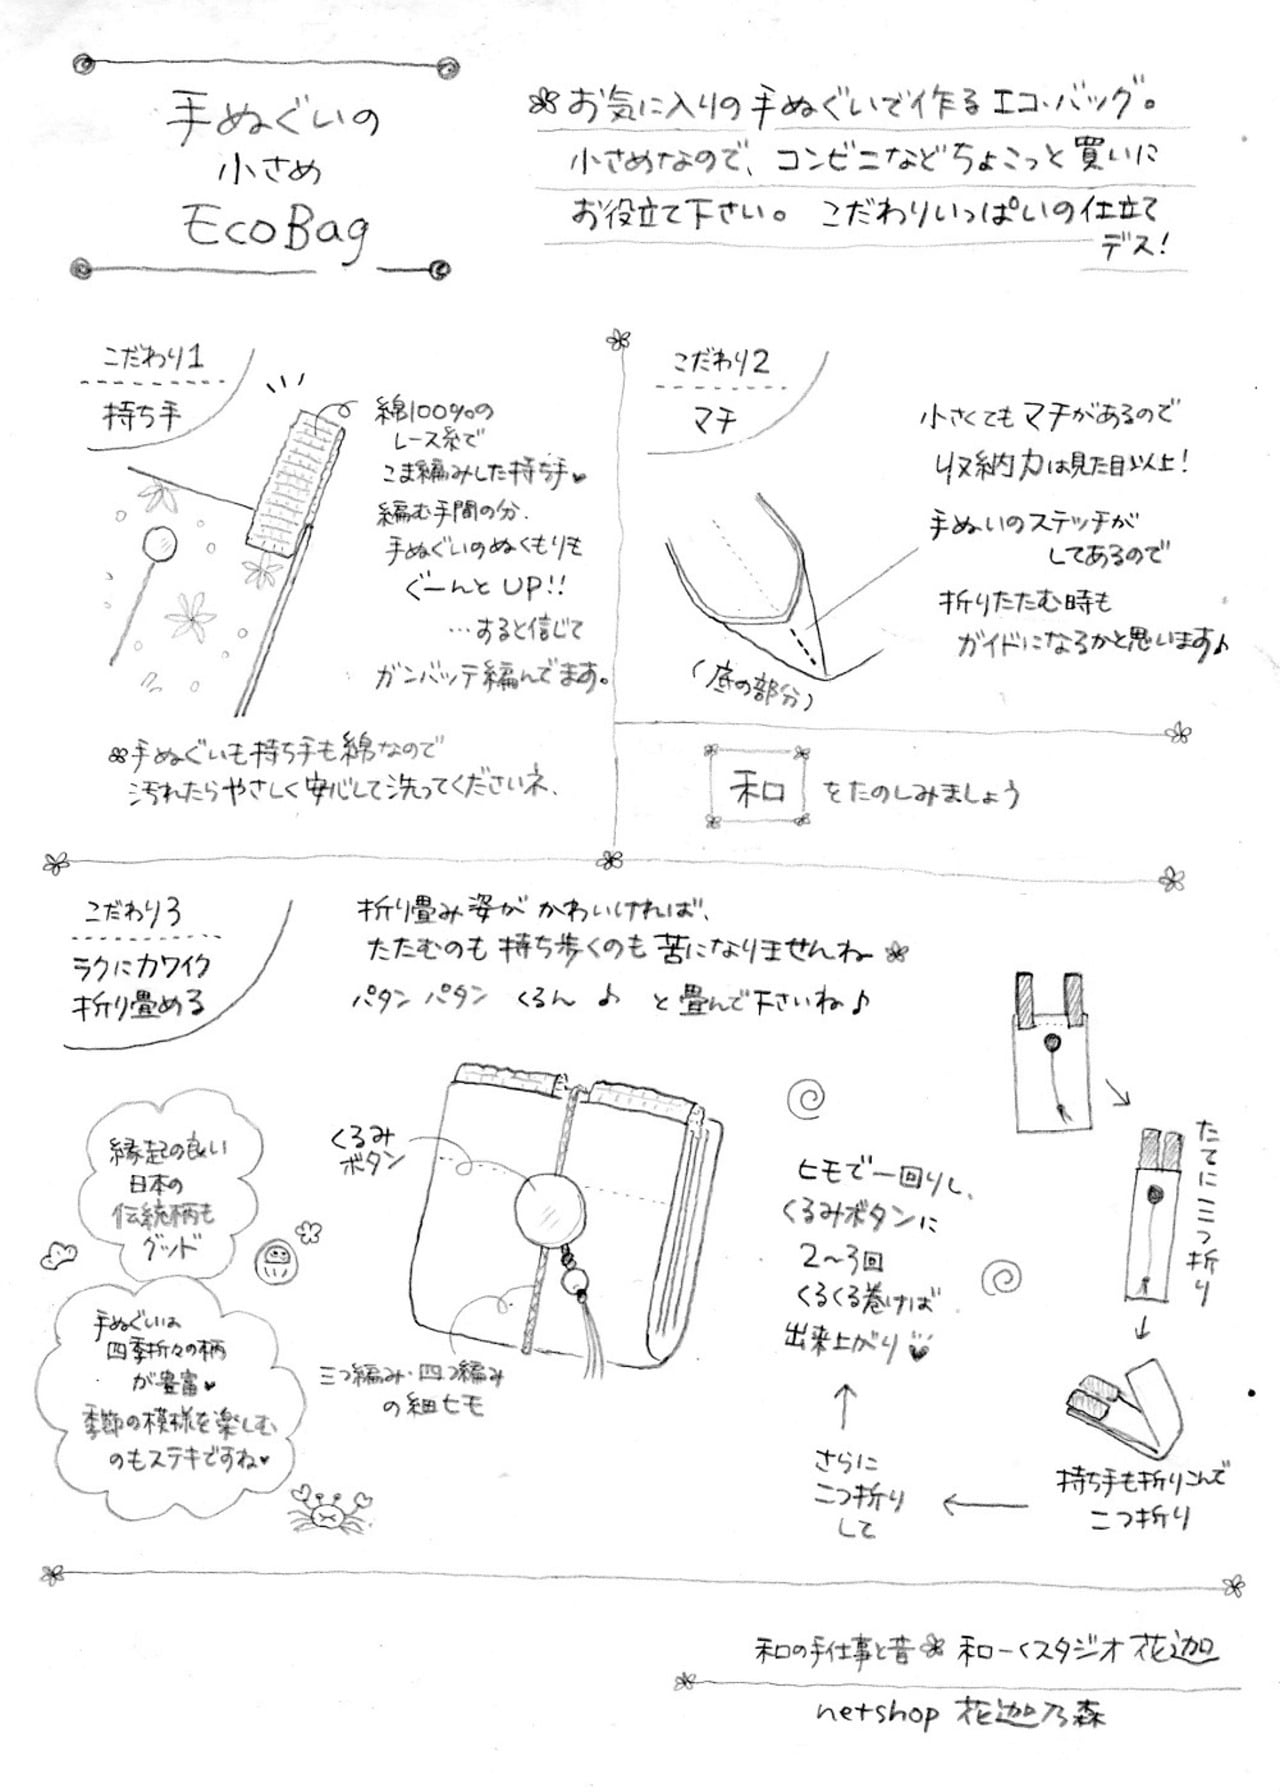 手ぬぐいの
小さめ
EcoBag
お気に入りの手ぬぐいで作るエコ・バッグ。
小さめなので、コンビニなどちょこっと買いに
お役立て下さい。こだわりいっぱいの仕立て
デス！
こだわり1
持ち手
綿100%の
レース糸で
こま編みした持ち手♥
編む手間の分、
手ぬぐいのぬくもりも
ぐーんとUP!!
…すると信じて
ガンバッテ編んでます。
手ぬぐいも持ち手も綿なので
汚れたらやさしく安心して洗ってくださいネ、
こだわり2
マチ
小さくてもマチがあるので
収納力は見た目以上！
手ぬいのステッチが
してあるので
折りたたむ時も
ガイドになるかと思います♪
(底の部分)
和をたのしみましょう
こだわり3
ラクにカワイク
折り畳める
折り畳み姿がかわいければ、
たたむのも持ち歩くのも苦になりませんね
パタンパタン くるん♪ と畳んで下さいね♪
縁起の良い
日本の
伝統柄も
グッド
手ぬぐいは
四季折々の柄
が豊富♥
季節の模様を楽しむ
のもステキですね♥
くるみ
ボタン
三つ編み・四つ編み
の細ヒモ
たてに二つ折り
持ち手も折りこんで
二つ折り
さらに
二つ折り
して
ヒモで一回りし、
くるみボタンに
2〜3回
くるくる巻けば
出来上がり♥
和の手仕事と昔 和ーくスタジオ花迦
netshop 花迦乃森